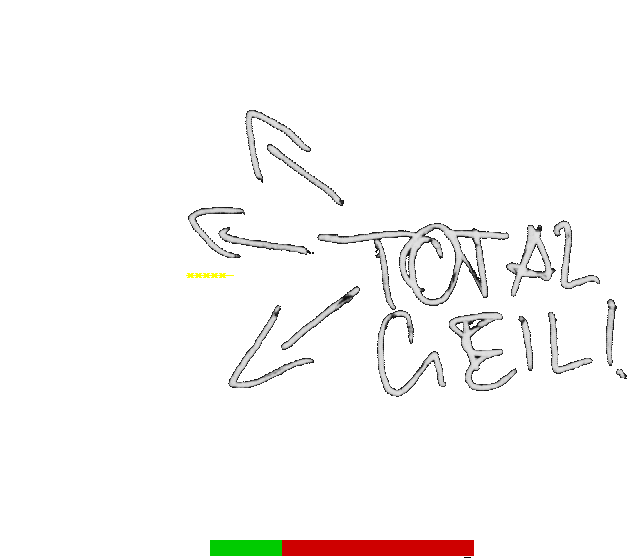 TOTAL
GEIL!